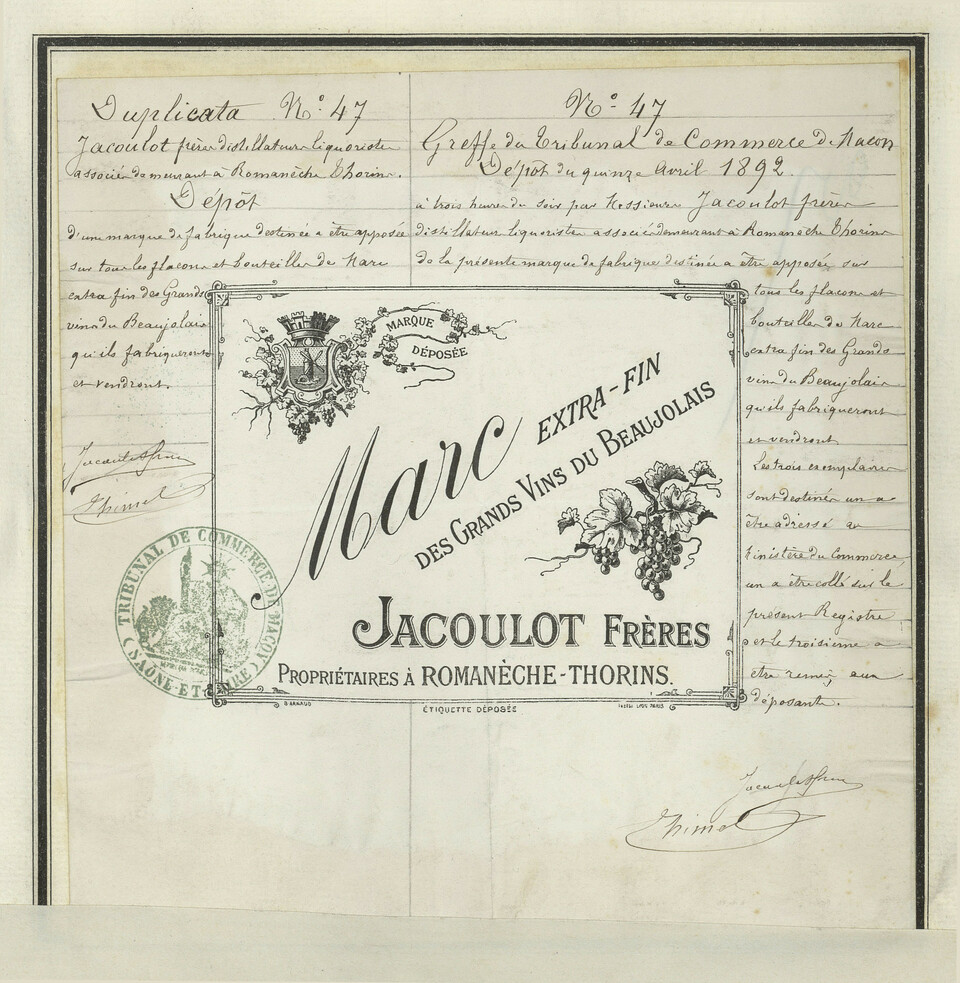 Duplicata N° 47
Jacoulot frères distillateurs liquoristes
associés demeurant à Romanèche Thorins.
Dépôt
d'une marque de fabrique destinée à être apposée
sur tous les flacons et bouteilles de Marc
extra fin des Grands
vins du Beaujolais
qu'ils fabriqueront
et vendront.
Jacoulot frères
Thimel
N° 47
Greffe du Tribunal de Commerce de Macon
Dépôt du quinze Avril 1892.
à trois heures du soir par Messieurs Jacoulot frères
distillateurs liquoristes associés demeurant à Romanèche Thorins
de la présente marque de fabrique destinée à être apposée sur
tous les flacons et
bouteilles de Marc
extra fin des Grands
vins du Beaujolais
qu'ils fabriqueront
et vendront
Les trois exemplaires
sont destinés un a
être adressé au
Ministère du Commerce
un a être collé sur le
présent Registre
et le troisième a
être remis aux
déposants.
Jacoulot frères
Thimel
MARQUE
DÉPOSÉE
Marc EXTRA-FIN
DES GRANDS VINS DU BEAUJOLAIS
JACOULOT FRÈRES
PROPRIÉTAIRES À ROMANÈCHE-THORINS.
B. ARNAUD
ÉTIQUETTE DÉPOSÉE
LYON PARIS
TRIBUNAL DE COMMERCE DE MACON
(SAONE-ET-LOIRE)